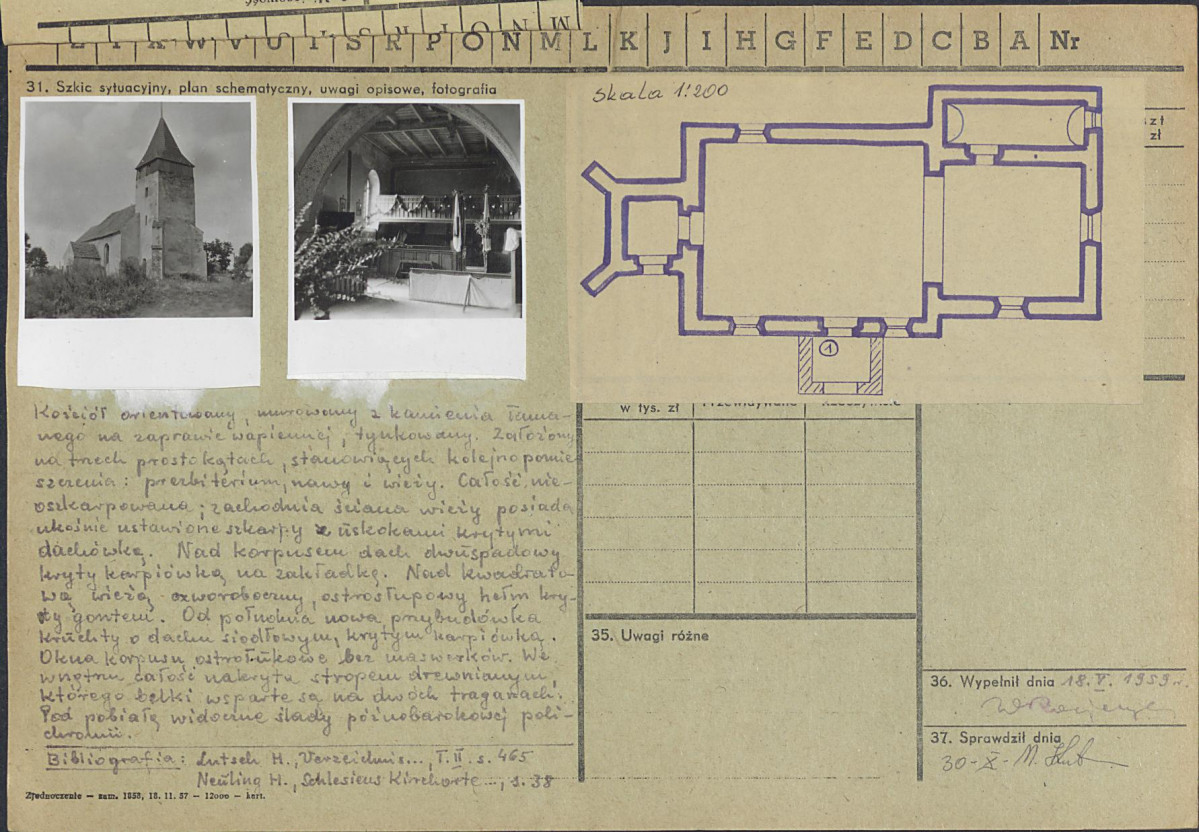 Z Y X W V U T S R P O N M L K J I H G F E D C B A Nr
31. Szkic sytuacyjny, plan schematyczny, uwagi opisowe, fotografia
Skala 1:200
1
zł
zł
Kościół orientowany, murowany z kamienia łama-
nego na zaprawie wapiennej, tynkowany. Założony
na trzech prostokątach, stanowiących kolejno pomie-
szczenia: prezbiterium, nawy i wieży. Całość nie-
oszkarpowana; zachodnia ściana wieży posiada
ukośnie ustawione szkarpy z uskokami krytymi
dachówką. Nad korpusem dach dwuspadowy
kryty karpiówką na zakładkę. Nad kwadrato-
wą wieżą czworoboczny, ostrosłupowy hełm kry-
ty gontem. Od południa nowa przybudówka
kruchty o dachu siodłowym, krytym karpiówką.
Okna korpusu ostrołukowe bez maswerków. We
wnętrzu całość nakryta stropem drewnianym,
którego belki wsparte są na dwóch tragarzach.
Pod pobiałą widoczne ślady późnobarokowej poli-
chromii.
Bibliografia: Lutsch H., Verzeichnis..., T. II. s. 465
Neuling H., Schlesiens Kirchorte..., s. 38
w tys. zł
35. Uwagi różne
36. Wypełnił dnia 18. V. 1959 r.
37. Sprawdził dnia
30-X- M.
Zjednoczenie — zam. 1858, 18. 11. 57 — 12000 — kart.